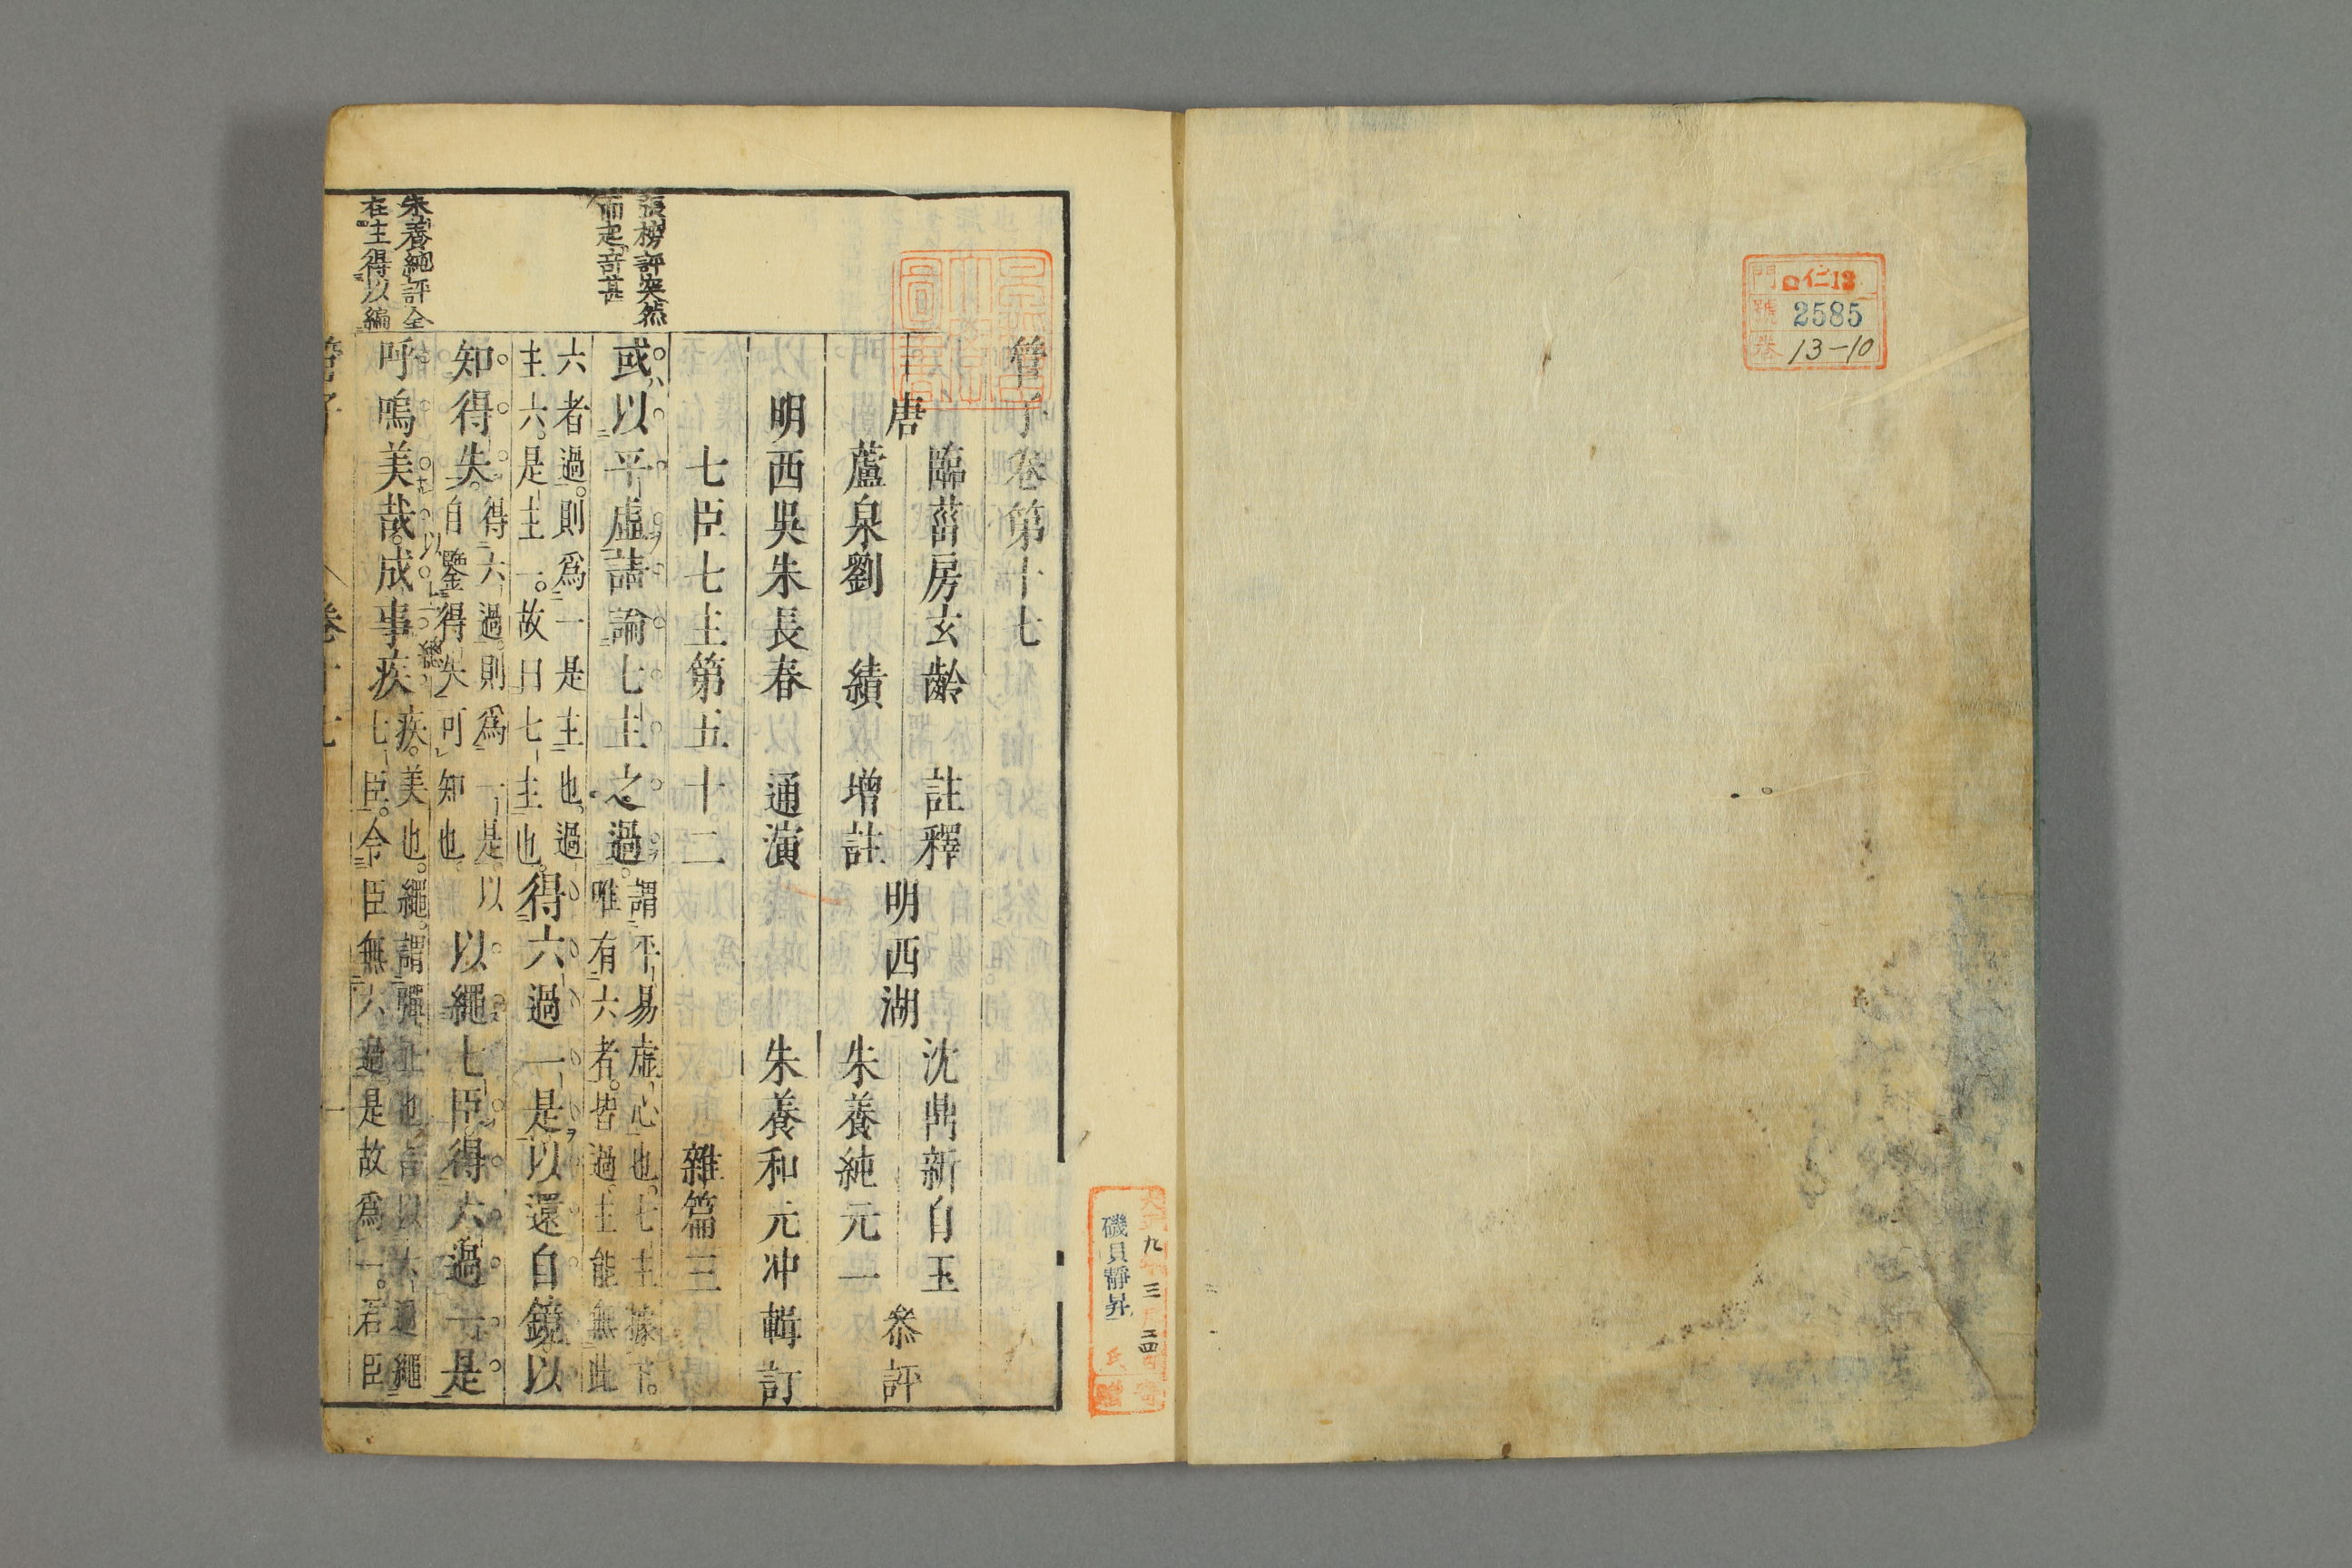 門 仁13
號 2585
卷 13-10
大正九年三月二四日寄
磯貝靜昇氏
贈
管子卷第十七
唐
臨菑房玄齡 註釋
蘆泉劉 績 增註
明西湖
沈鼎新自玉
朱養純元一
叅評
明西吳朱長春 通演
朱養和元冲輯訂
七臣七主第五十二 雜篇三
張榜評突然
而起奇甚
或以平虛請論七主之過
謂平易虛心也。七主據下。
唯有六者。皆過主能無此
六者過。則爲一是主也。過
主六。是主一。故曰七主也。
得六過一是以還自鏡以
知得失。
得六過。則爲一是。以
自鑒得失可知也。
以繩七臣得六過一是
朱養純評全
在主得以編
呼嗚美哉。成事疾
疾。美也。繩。謂彈正也言以六過繩
七臣。令臣無六過是故爲一。若臣
管子 卷十七 一